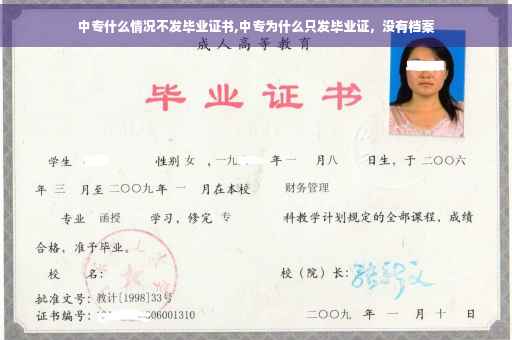 中专什么情况不发毕业证书,中专为什么只发毕业证，没有档案
成人高等教育
毕业证书
学生 性别 女 ，一九 年 一 月八 日生，于 二〇〇六
年 三 月至 二〇〇九 年 一 月在本校 财务管理
专业 函授 学习，修完 专 科教学计划规定的全部课程，成绩
合格，准予毕业。
校 名： 校（院）长：
批准文号：教计[1998]33号
证书编号： 06001310 二〇〇九 年 一 月 十 日